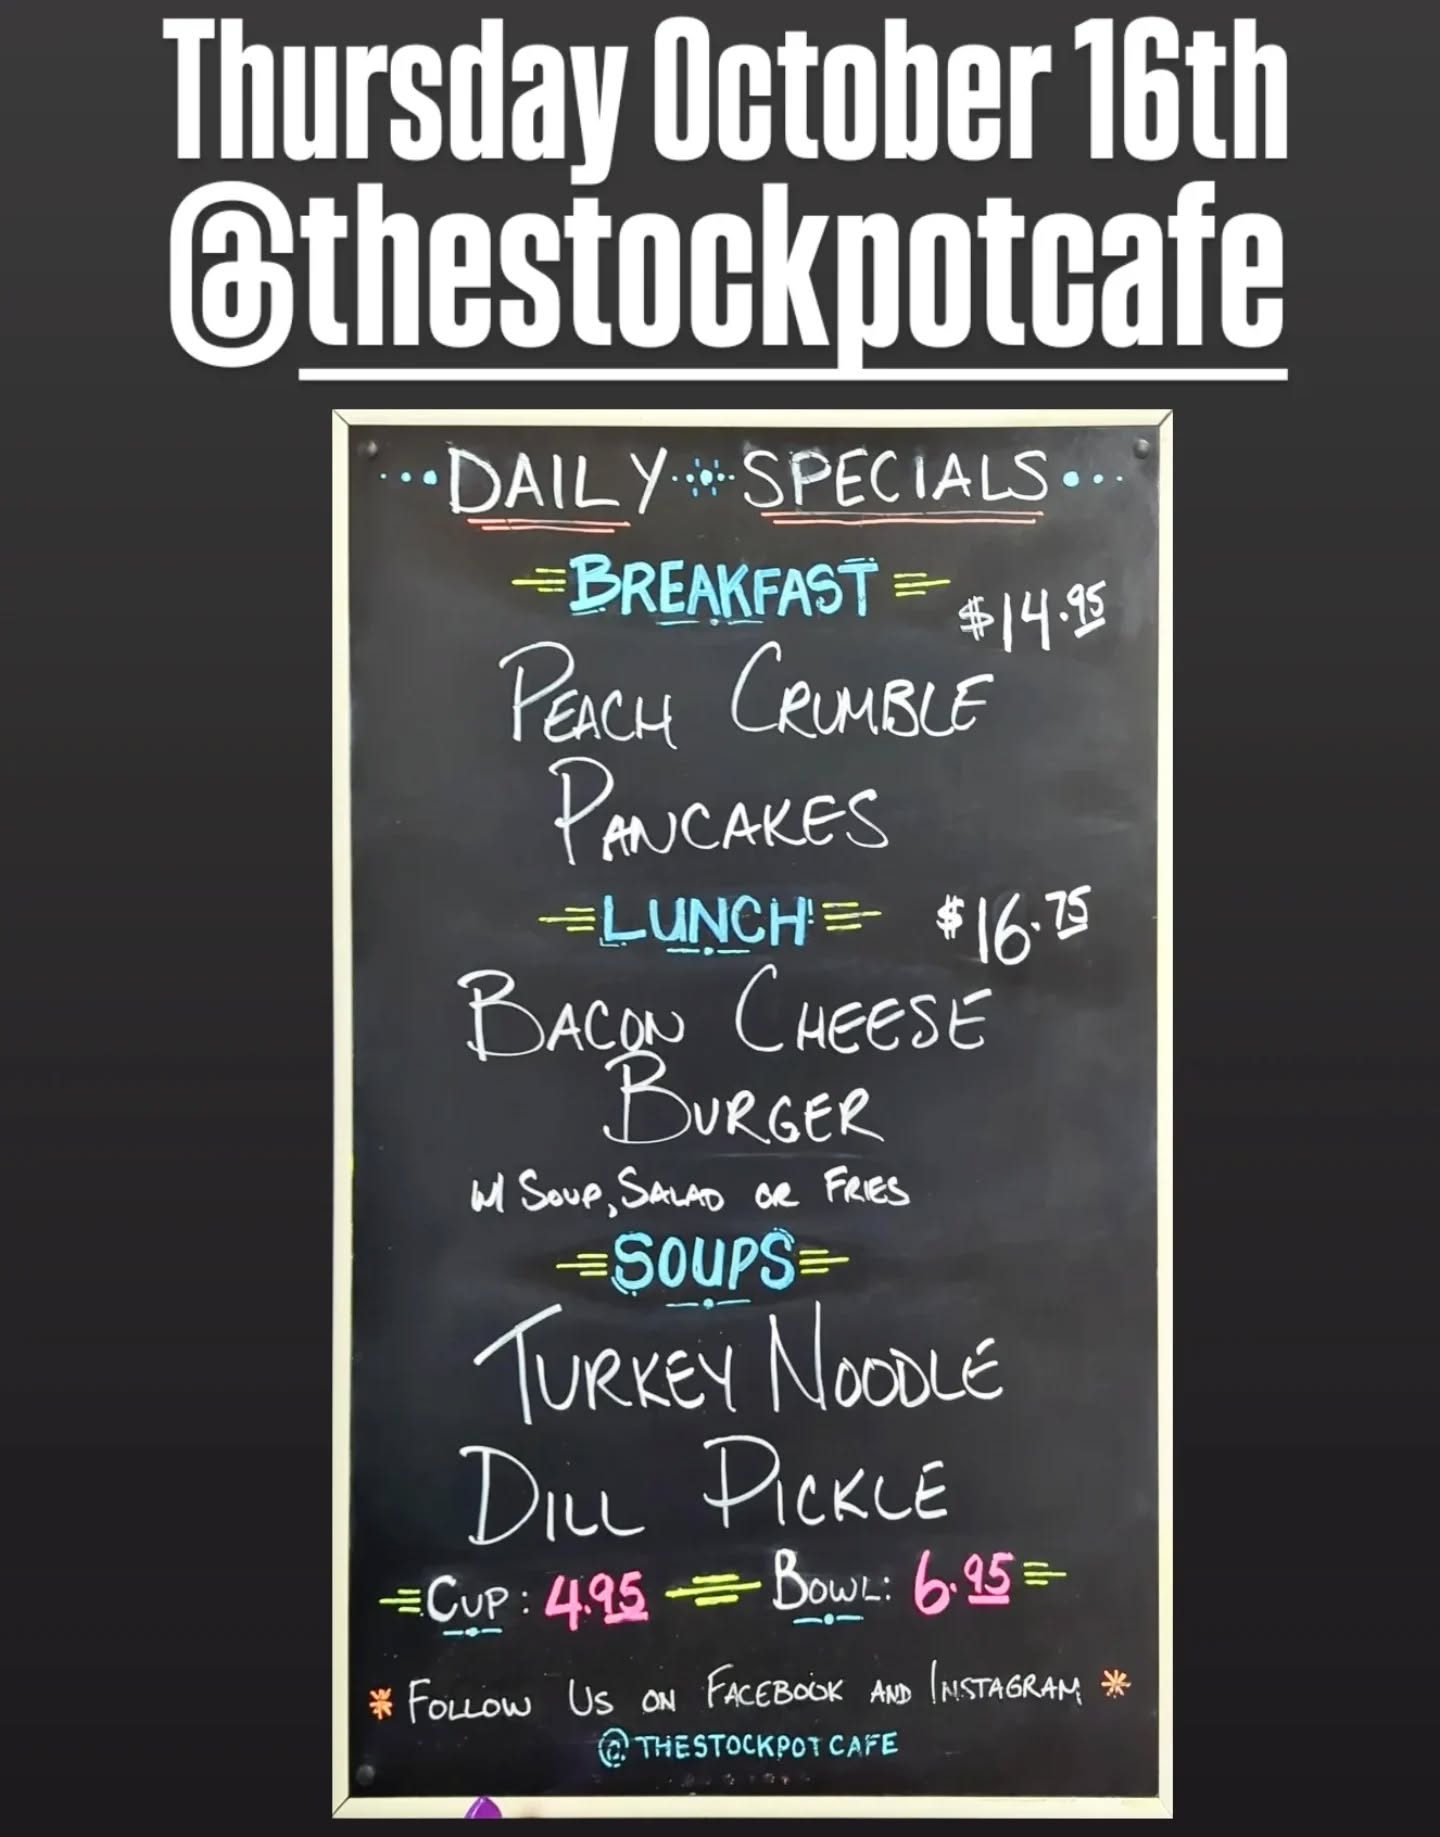 Thursday October 16th
@thestockpotcafe
DAILY SPECIALS
BREAKFAST
$14.95
PEACH CRUMBLE
PANCAKES
LUNCH!
$16.75
BACON CHEESE
BURGER
W/ SOUP, SALAD OR FRIES
SOUPS
TURKEY NOODLE
DILL PICKLE
CUP: 4.95 BOWL: 6.95
* FOLLOW US ON FACEBOOK AND INSTAGRAM *
@THESTOCKPOTCAFE